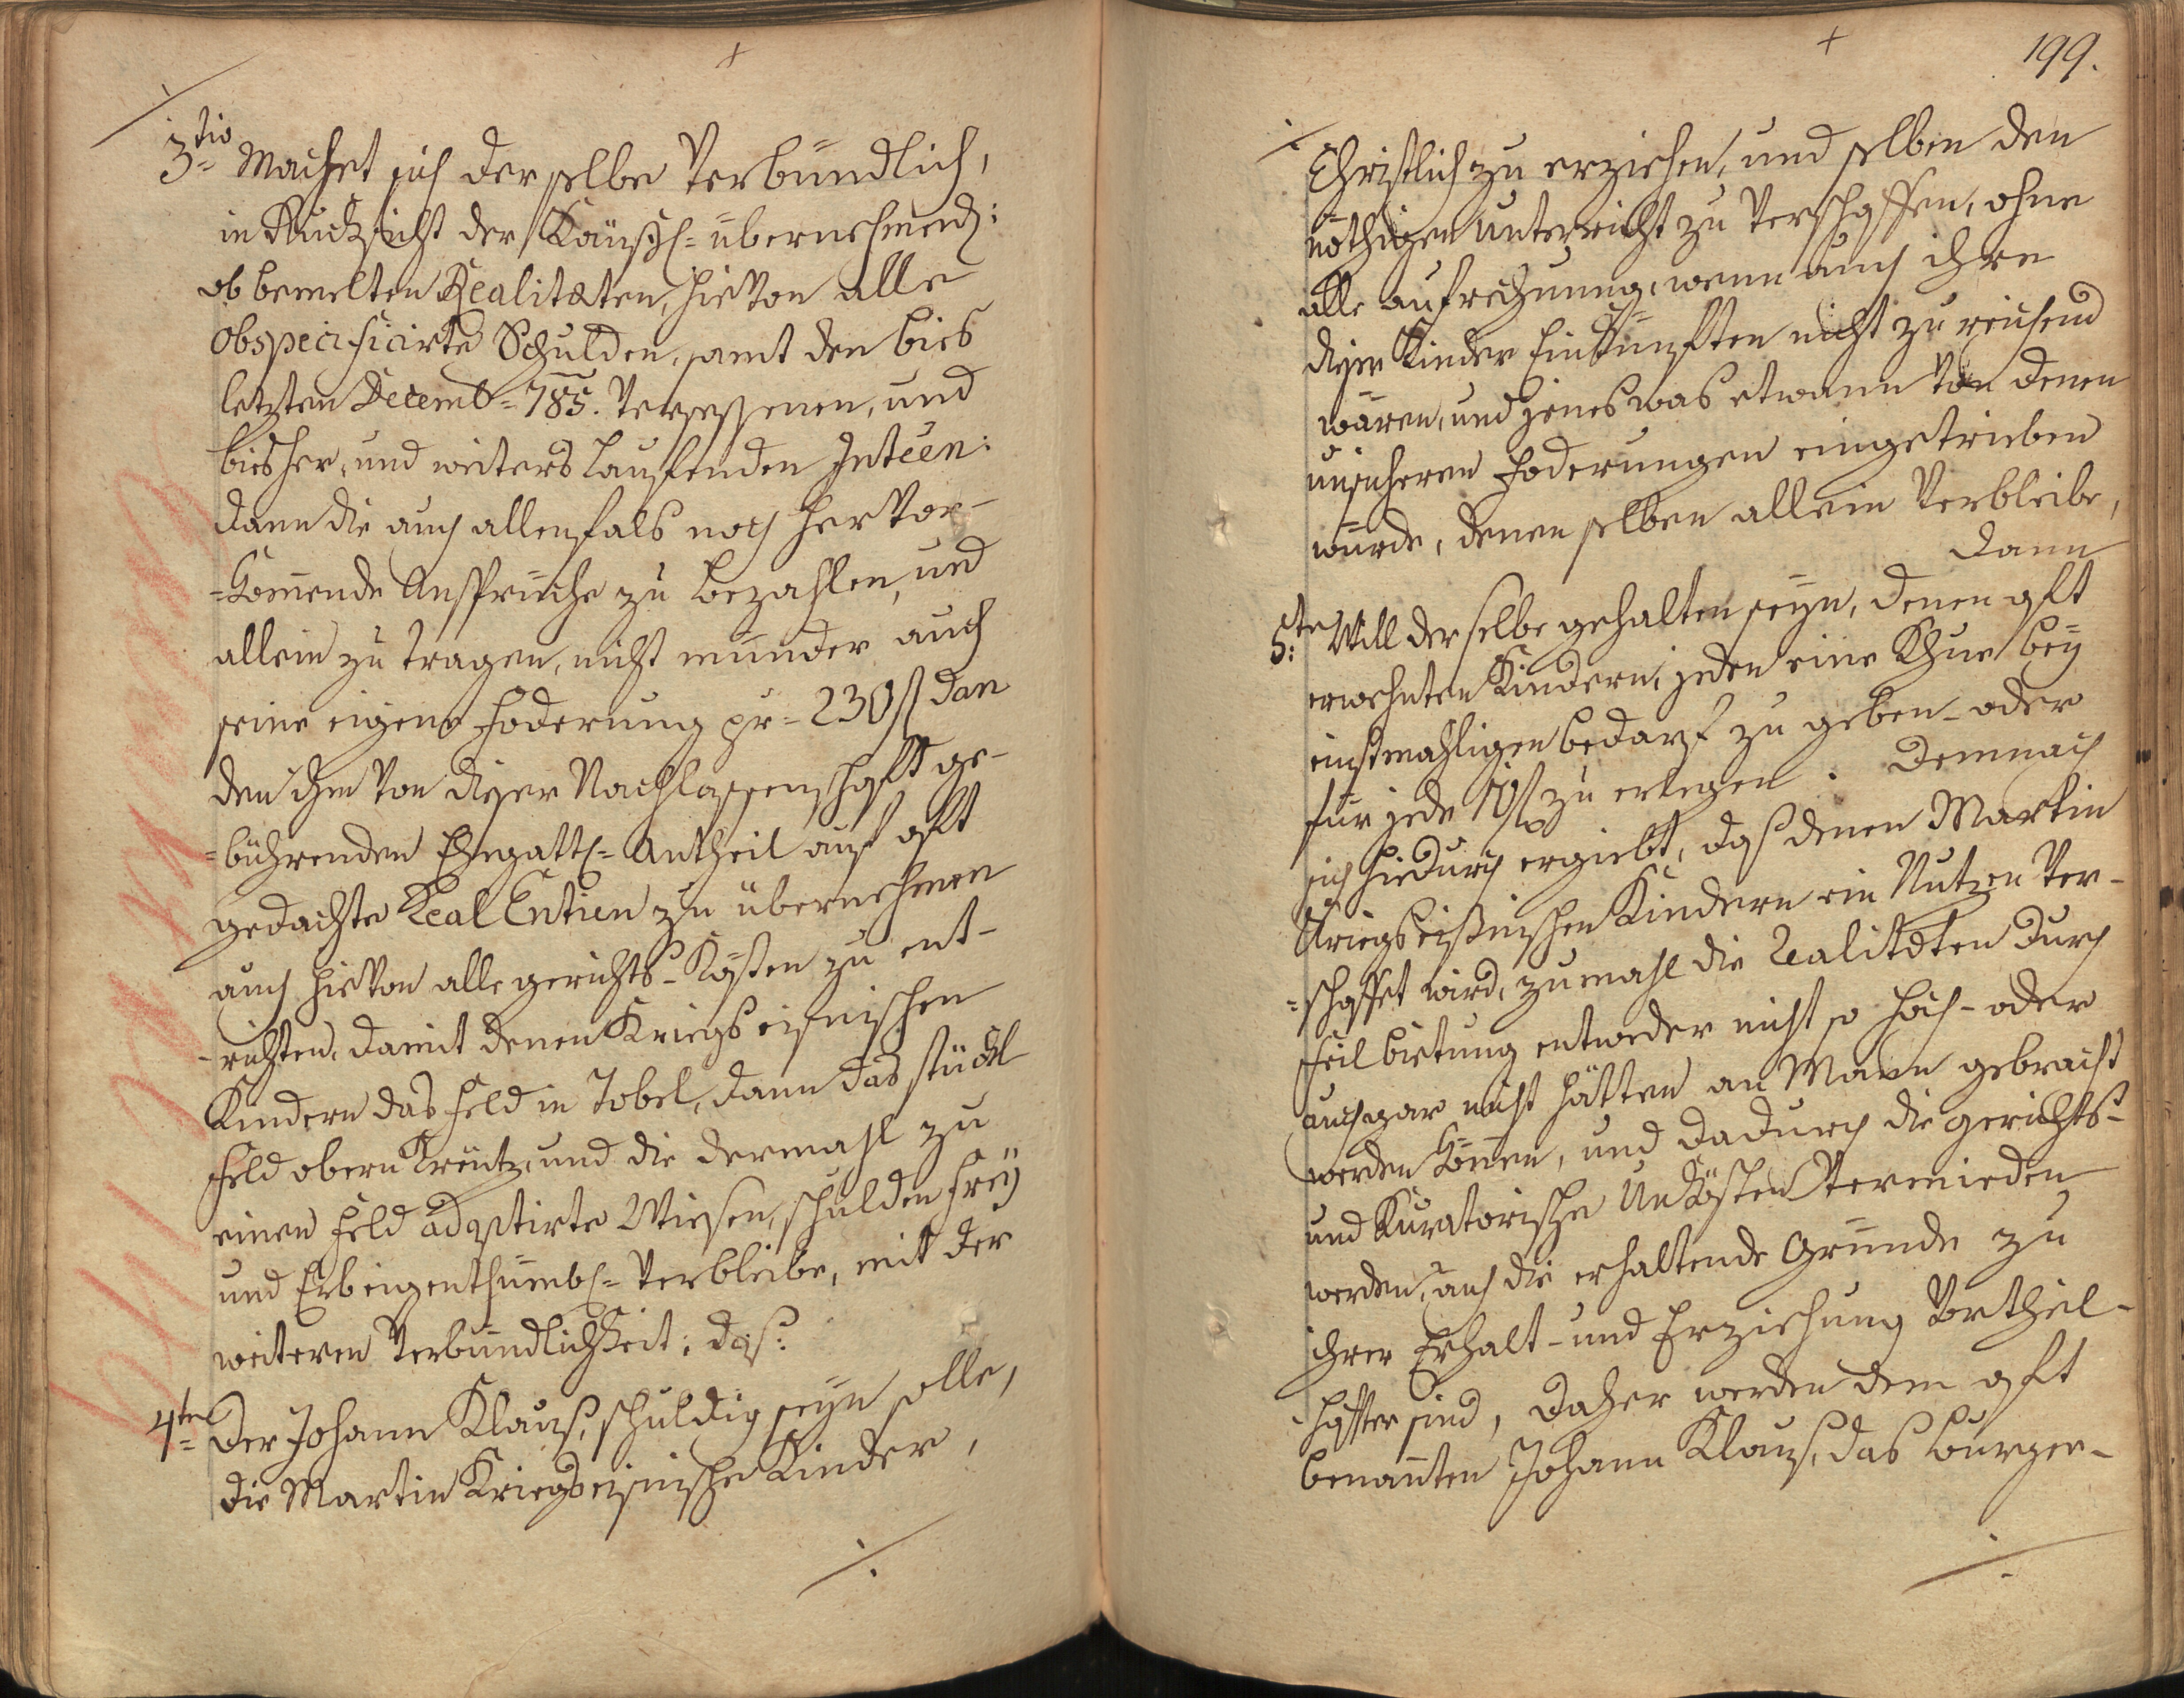 3tio Machet sich derselbe Verbündlich,
in Rücksicht der Käuflich= übernehmend:
obbemelten Realitæten, hievon alle
obspecificirte Schulden, samt den bies
letzten Decemb= 785. Versessenen, und
bishero, und weiters lauffenden Inteen:
dann die auch allenfals noch hervor-
=kommende Ansprüche zu bezahlen, und
allein zu tragen, nicht münder auch
seine eigene Foderung pr= 230 f dan
den ihm von dieser Nachlassenschafft ge-
=bührenden Ehegattl= Antheil auf oft
gedachte Real Entien zu übernehmen
auch hievon alle gerichts-Kösten zu ent-
-richten, damit denen Kriegseisnischen
Kindern das Feld in Tobel, dann das stückl
Feld obern Kreutz, und die dermahl zu
einen Feld adoptirte Wiesen, schulden freÿ
und Erbeigenthümbl= Verbleibe, mit der
weiteren Verbündlichkeit: daß:
4ten Der Johann Klauß, schuldig seÿn solle,
die Martin Kriegseisnische Kinder,
./.
199.
./. Christlich zu erziehen, und selben den
nöthigen Unterricht zu Verschaffen, ohne
alle aufrechnung, wenn auch ihre
dieser Kinder Einkünften nicht zureichend
wären, und jenes was etwann von denen
unsicheren Foderungen eingetrieben
wurde, denenselben allein Verbleibe,
dann
5:ten Will derselbe gehalten seÿn, denen oft
erwehnten Kindern, jeden eine Khue beÿ
einstmahligen bedarf zu geben- oder
für jede f zu erlegen. Demnach
sich hiedurch ergiebt, daß denen Martin
Kriegseisnischen Kindern ein Nutzen Ver-
=schaffet wird, zumahl die Realitæten durch
Feilbietung entweder nicht so hoch- oder
auch gar nicht hätten an Mann gebracht
werden können, und dadurch die gerichts-
und Kuratorische Unkösten Vermieden
werden, auch die erhaltende Gründe zu
ihrer Erhalt- und Erziehung Vortheil-
-hafter sind, Daher werden dem oft
benannten Johann Klauß, das bürger-
./.